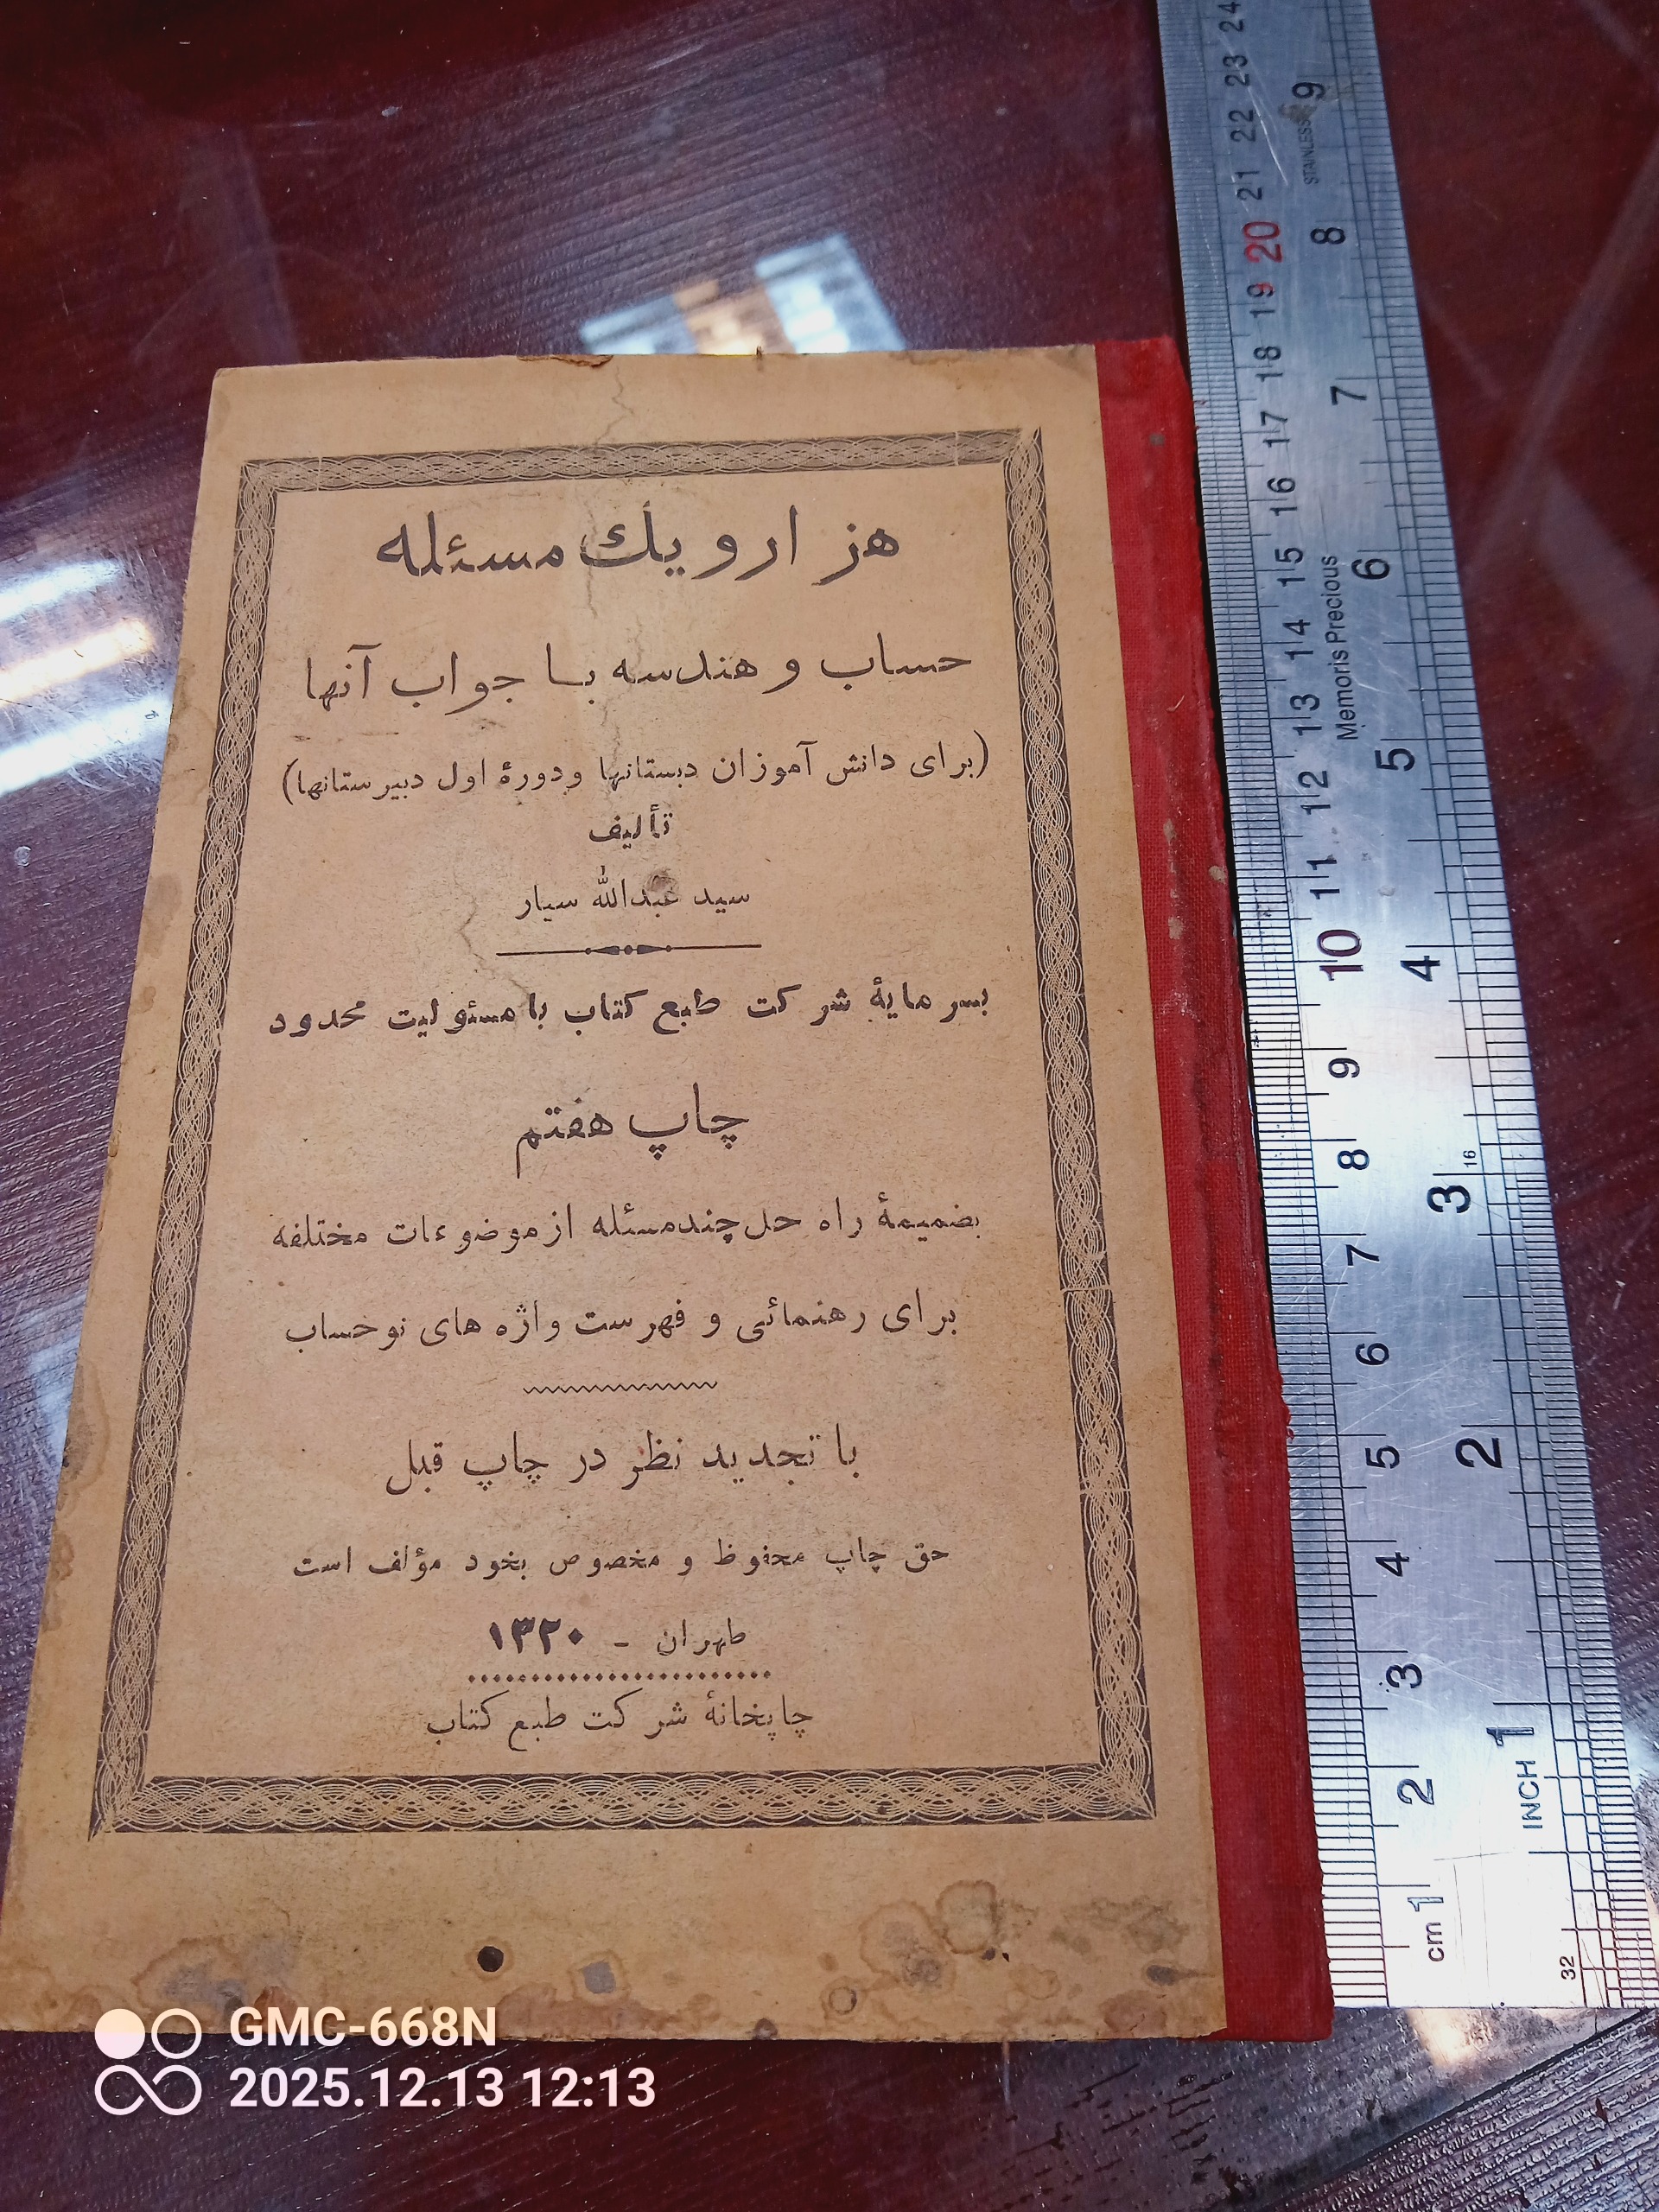 هزار و یك مسئله
حساب و هندسه با جواب آنها
(برای دانش آموزان دبستانها و دورهٔ اول دبیرستانها)
تألیف
سید عبدالله سیار
بسرمایهٔ شرکت طبع کتاب با مسئولیت محدود
چاپ هفتم
بضمیمهٔ راه حل چند مسئله از موضوعات مختلفه
برای رهنمائی و فهرست واژه های نو حساب
با تجدید نظر در چاپ قبل
حق چاپ محفوظ و مخصوص بخود مؤلف است
طهران - ۱۳۲۰
چاپخانهٔ شرکت طبع کتاب
cm 1 2 3 4 5 6 7 8 9 10 11 12 13 14 15 16 17 18 19 20 21 22 23 24
Memoris Precious
INCH 1 2 3 4 5 6 7 8 9
STAINLESS
16
32
GMC-668N
2025.12.13 12:13